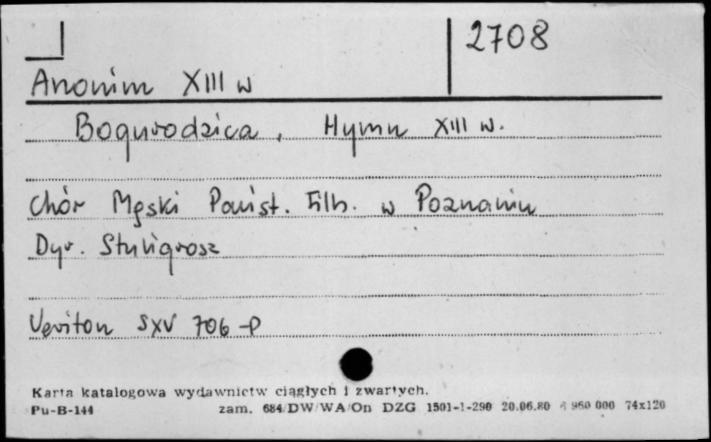 2708
Anonim XIII w
Bogurodzica. Hymn XIII w.
Chór Męski Państ. Filh. w Poznaniu
Dyr. Stuligrosz
Veriton SXV 706-P
Karta katalogowa wydawnictw ciągłych i zwartych.
Pu-B-144 zam. 684/DW/WA/On DZG 1501-1-290 20.06.80 960 000 74x120